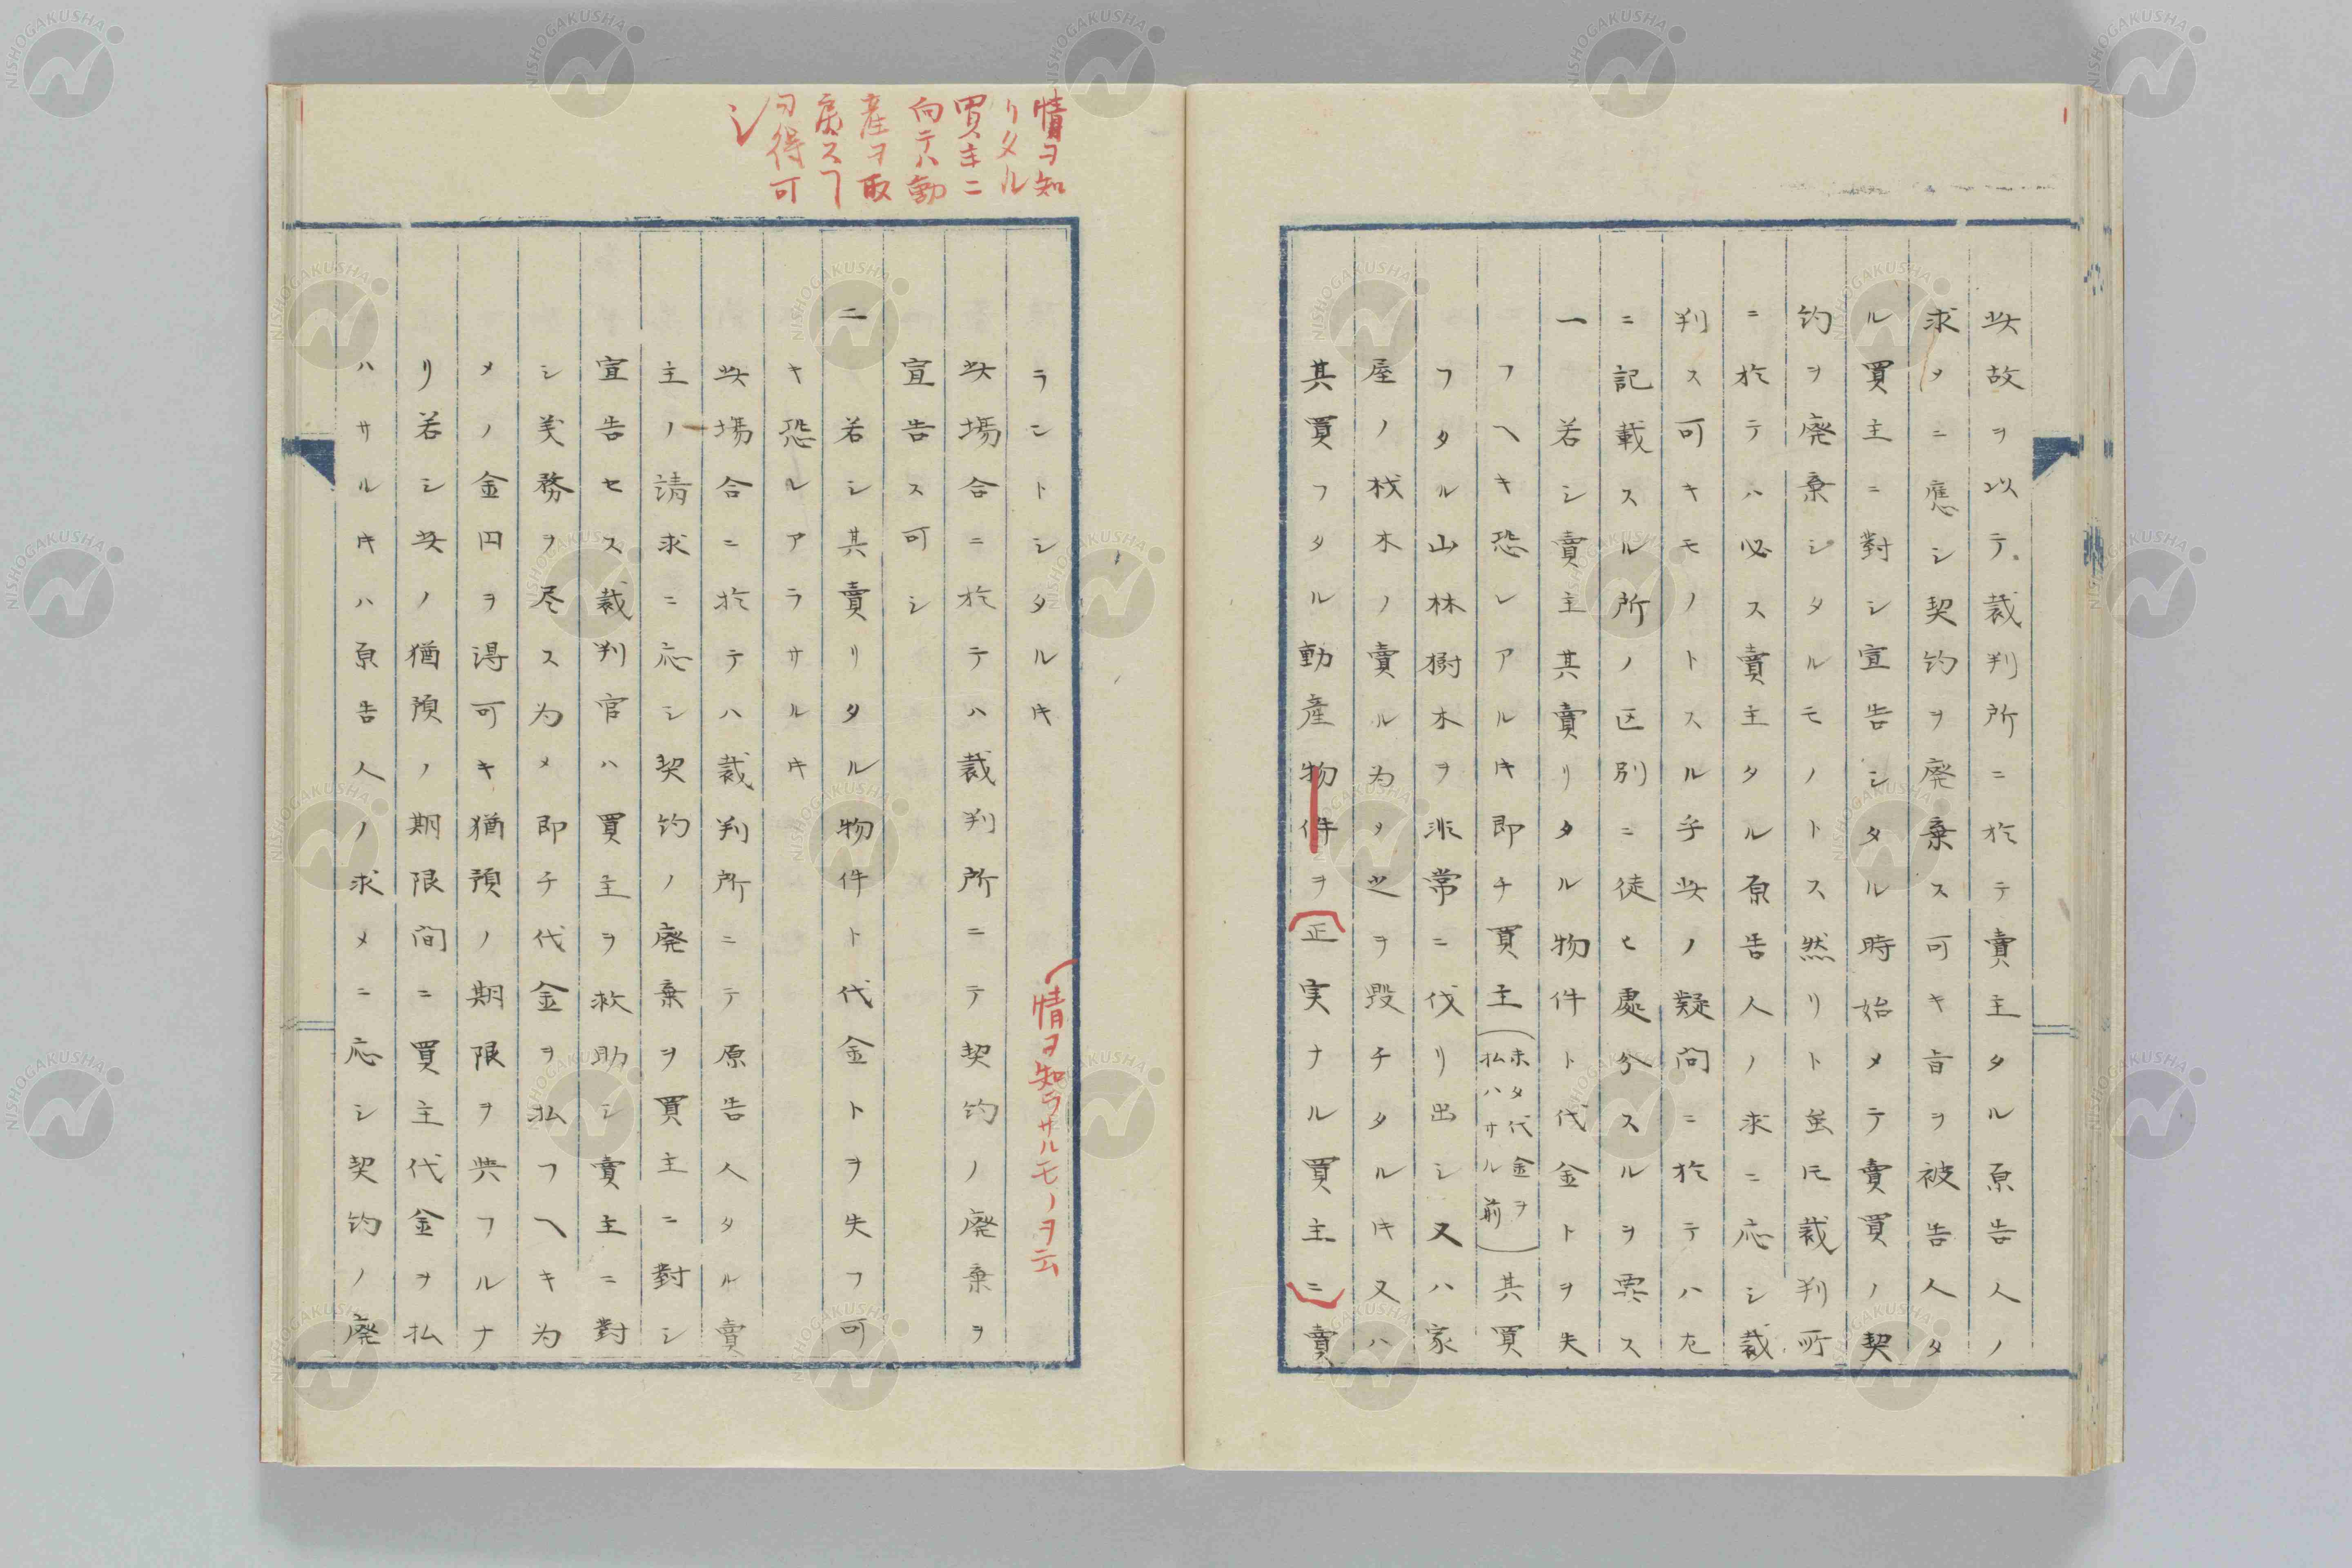 此故ヲ以テ裁判所ニ於テ賣主タル原告人ノ
求メニ應シ契約ヲ廃棄ス可キ旨ヲ被告人タ
ル買主ニ對シ宣告シタル時始メテ賣買ノ契
約ヲ廃棄シタルモノトス然リト虽𪜈裁判所
ニ於テハ必ス賣主タル原告人ノ求ニ応シ裁
判ス可キモノトスル乎此ノ疑問ニ於テハ左
ニ記載スル所ノ区別ニ従ヒ處分スルヲ要ス
一 若シ賣主其賣リタル物件ト代金トヲ失
フヘキ恐レアルキ即チ買主(未タ代金ヲ払ハサル前)其買
フタル山林樹木ヲ非常ニ伐リ出シ又ハ家
屋ノ材木ノ賣ル為メ之ヲ毀チタルキ又ハ
其買フタル動産物件ヲ正実ナル買主ニ賣
情ヲ知
リタル
買主ニ
向テハ動
産ヲ取
戻スヿ
ヲ得可
シ
ラントシタルキ
情ヲ知ラサルモノヲ云
此場合ニ於テハ裁判所ニテ契約ノ廃棄ヲ
宣告ス可シ
二 若シ其賣リタル物件ト代金トヲ失フ可
キ恐レアラサルキ
此場合ニ於テハ裁判所ニテ原告人タル賣
主ノ請求ニ応シ契約ノ廃棄ヲ買主ニ對シ
宣告セス裁判官ハ買主ヲ救助シ賣主ニ對
シ義務ヲ尽ス為メ即チ代金ヲ払フヘキ為
メノ金円ヲ得可キ猶預ノ期限ヲ與フルナ
リ若シ此ノ猶預ノ期限間ニ買主代金ヲ払
ハサルキハ原告人ノ求メニ応シ契約ノ廃
NISHOGAKUSHA